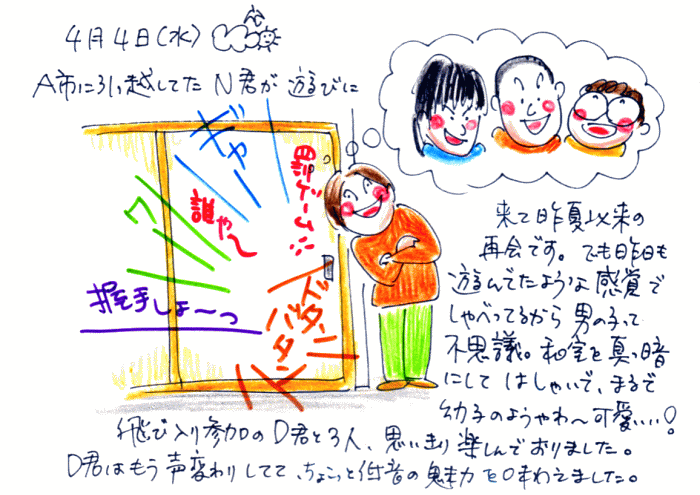 4月4日(水)
A市に引っ越してた N君が 遊びに
ギャー
罰ゲーム
ワー
誰や〜
握手しょ〜っ
ドターン
バタン
来て昨夏以来の
再会です。でも昨日も
遊んでたような感覚で
しゃべってるから男の子って
不思議。和室を真っ暗
にして はしゃいで、まるで
幼子のようやわ〜可愛いい!
飛び入り参加の D君と3人、思いきり楽しんでおりました。
D君はもう声変わりしてて、ちょこっと低音の魅力を味わえました。